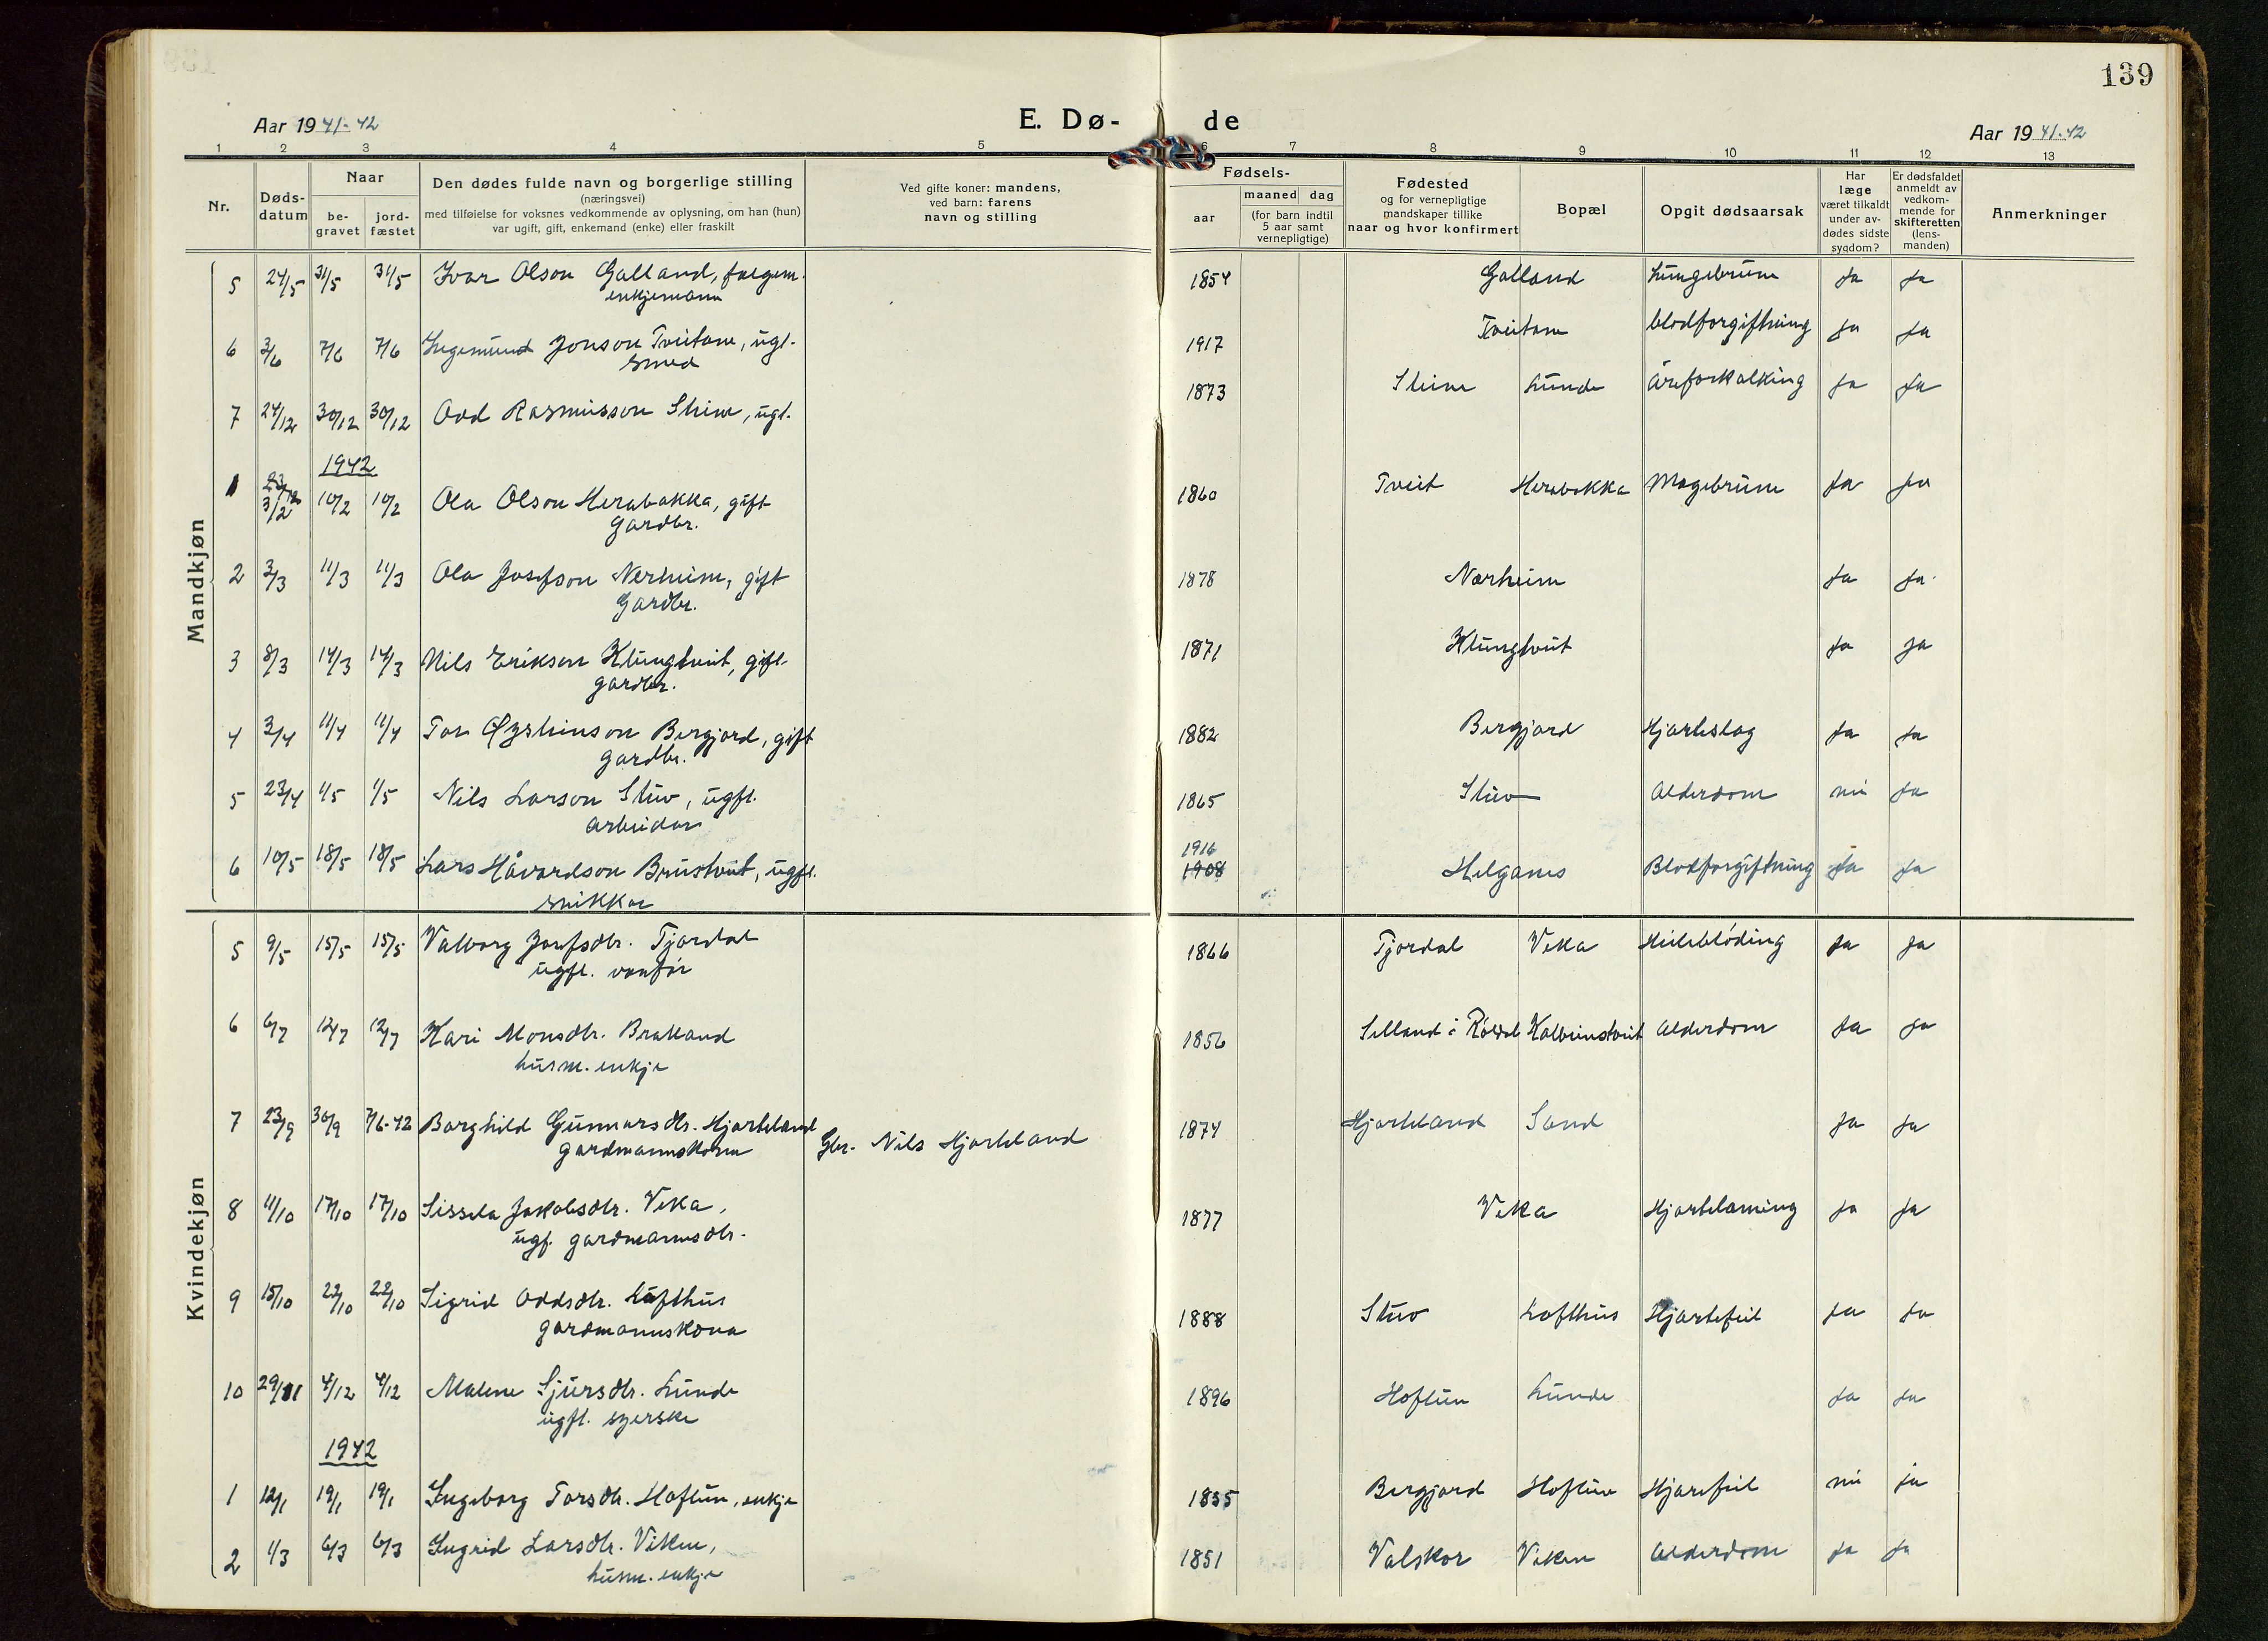 139
Aar 1941-42
E. Dø-
de
Aar 1941-42
1 2 3 4 5 6 7 8 9 10 11 12 13
Nr.
Døds-
datum
Naar
be-
gravet
jord-
fæstet
Den dødes fulde navn og borgerlige stilling
(næringsvei)
med tilføielse for voksnes vedkommende av oplysning, om han (hun)
var ugift, gift, enkemand (enke) eller fraskilt
Ved gifte koner: mandens,
ved barn: farens
navn og stilling
Fødsels-
aar
maaned dag
(for barn indtil
5 aar samt
vernepligtige)
Fødested
og for vernepligtige
mandskaper tillike
naar og hvor konfirmert
Bopæl
Opgit dødsaarsak
Har
læge
været tilkaldt
under av-
dødes sidste
sygdom?
Er dødsfaldet
anmeldt av
vedkom-
mende for
skifteretten
(lens-
manden)
Anmerkninger
Mandkjøn
5 24/5 31/5 31/5 Ivar Olson Galland, 1854 Galland Lungebrune Ja Ja
enkjemann
6 3/6 7/6 7/6 Ingemund Jonson Tveitane, ugt. 1917 Tveitane blodforgiftning Ja Ja
Smed
7 24/12 30/12 30/12 Odd Rasmusson Steine, ugt. 1873 Steine Lunde Åreforkalking Ja Ja
1942
1 3/2 10/2 10/2 Ola Olson Herabakka, gift 1860 Tveit Herabakka Magebrune Ja Ja
Gardbr.
2 3/3 11/3 11/3 Ola Josefson Nerheim, gift 1878 Nærheim Ja Ja
Gardbr.
3 8/3 14/3 14/3 Nils Erikson Klungtveit, gift 1871 Klungtveit Ja Ja
gardbr.
4 3/4 11/4 11/4 Tor Øysteinson Bergjord, gift 1882 Bergjord Hjarteslag Ja Ja
gardbr.
5 23/4 1/5 1/5 Nils Larson Stuv, ugft. 1865 Stuv Alderdom nei Ja
Arbeidar
6 10/5 18/5 18/5 Lars Håvardson Brustveit, ugft. 1916 1908 Helganes Blodforgiftning Ja Ja
snikkar
Kvindekjøn
5 9/5 15/5 15/5 Valborg Josefsdtr. Tjordal 1866 Tjordal Veka Heilebløding Ja Ja
ugft. vanfør
6 6/7 12/7 12/7 Kari Monsdtr. Brakland 1856 Selland i Røldal Kolbeinstveit Alderdom Ja Ja
husm. enkje
7 23/9 30/9 7/6-42 Borghild Gunnarsdtr. Hjorteland Gbr. Nils Hjorteland 1874 Hjorteland Sand Ja Ja
gardmannskone
8 11/10 17/10 17/10 Sissela Jakobsdtr. Veka, 1877 Veka Hjartelaming Ja Ja
ugf. gardmannsdtr.
9 15/10 22/10 22/10 Sigrid Oddsdtr. Lofthus 1888 Stuv Lofthus Hjartefeil Ja Ja
gardmannskona
10 29/11 4/12 4/12 Malene Sjursdtr. Lunde 1896 Hoftun Lunde Ja Ja
ugft. syerske
1942
1 12/1 19/1 19/1 Ingeborg Torsdtr. Hoftun, enkje 1855 Bergjord Hoftun Hjarefeil nei ja
2 1/3 6/3 6/3 Ingrid Larsdtr. Viken, 1851 Valskor Viken Alderdom Ja Ja
husm. enkje